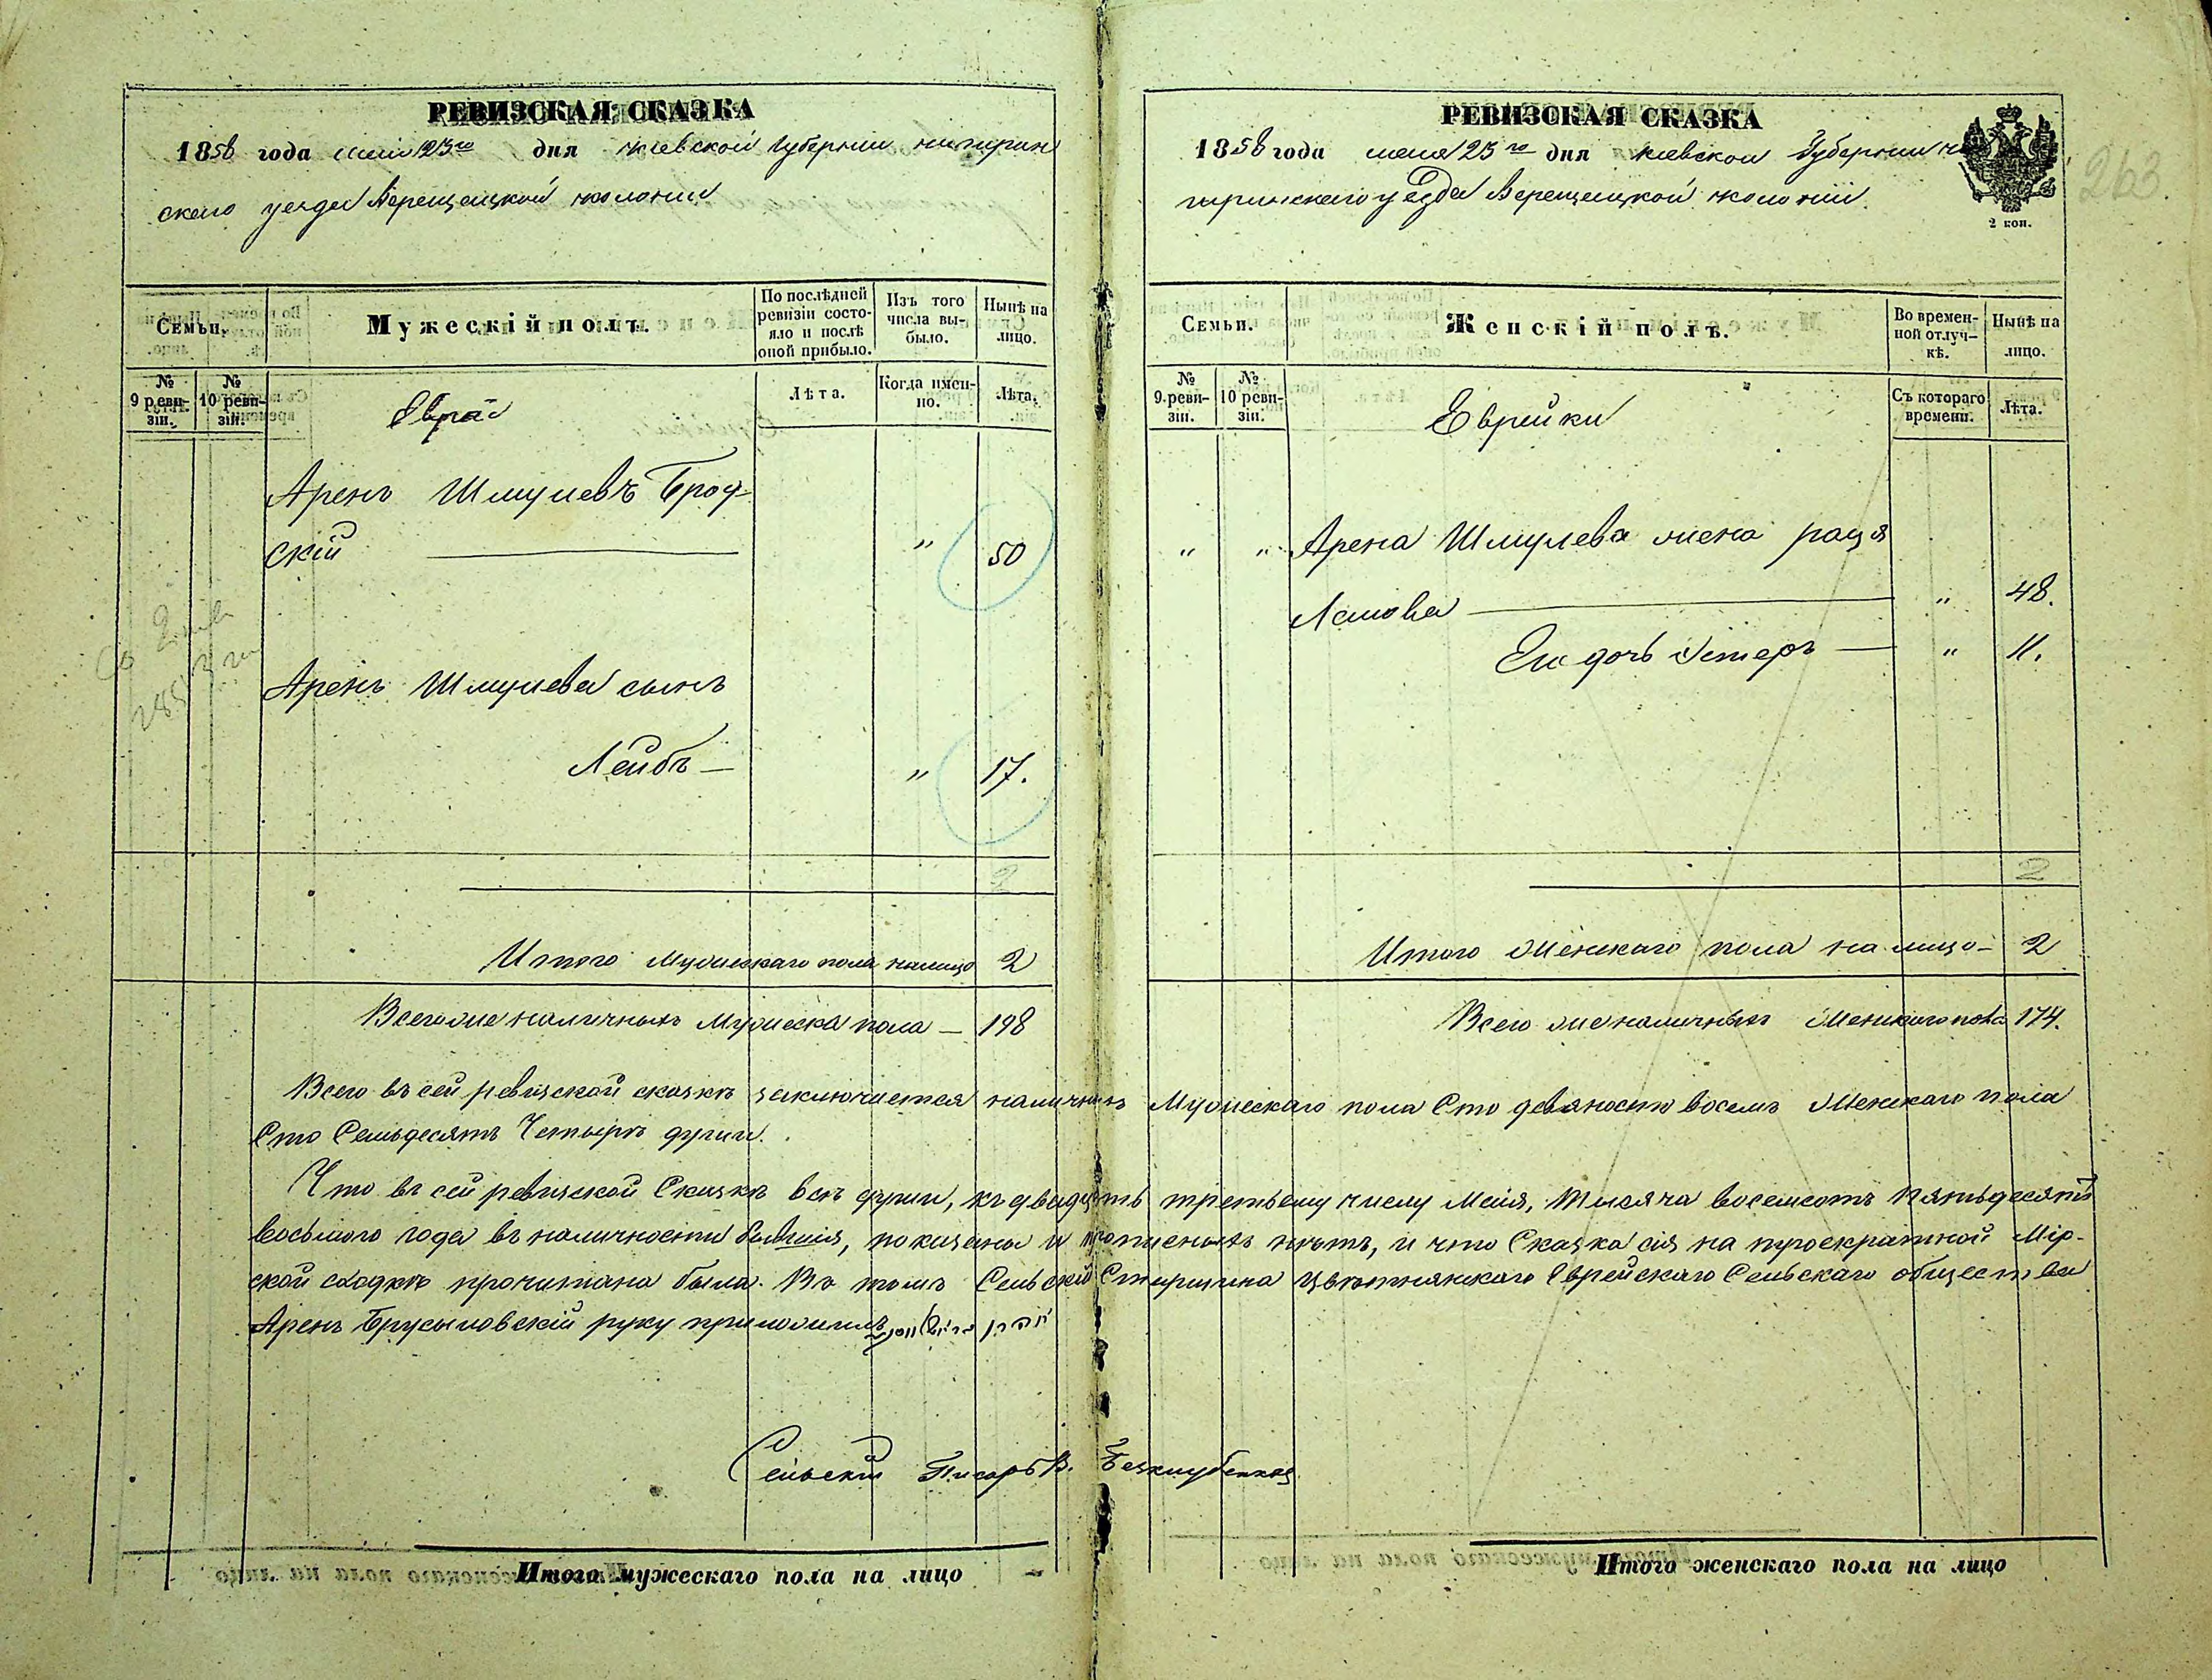 РЕВИЗСКАЯ СКАЗКА
1858 года мая 23го дня Киевской Губернии чигирин
скаго уезда Верещацкой колонии
Семьи.
Мужескій полъ.
По послѣдней ревизіи состояло и послѣ оной прибыло.
Изъ того числа выбыло.
Нынѣ на лицо.
№ 9 ревизіи.
№ 10 ревизіи.
Евреи
Лѣта.
Когда именно.
Лѣта.
Аренъ Шмулевъ Брод-
скій — " 50
Аренъ Шмулева сынъ
Лейбъ — " 17.
2
Итого Мужескаго пола налицо 2
Всегоже наличныхъ Мужеска пола — 198
РЕВИЗСКАЯ СКАЗКА
1858 года мая 23го дня Киевской Губернии чи
гиринскаго уѣзда Верещацкой колоніи
2 коп.
263.
Семьи.
Женскій полъ.
Во временной отлучкѣ.
Нынѣ на лицо.
№ 9 ревизіи.
№ 10 ревизіи.
Еврейки
Съ котораго времени.
Лѣта.
" " Арена Шмулева жена рация
— " 48.
Его дочь Эстеръ — " 11.
2
Итого Женскаго пола на лицо — 2
Всего же наличныхъ Женскаго пола 174.
Всего въ сей ревизской сказкѣ заключается наличныхъ Мужескаго пола Сто девяносто восемь Женскаго пола
Сто Семьдесятъ Четыре души.
Что въ сей ревизской Сказкѣ всѣ души, къ двадцать третьему числу Мая, Тысяча восемсотъ пятьдесятъ
восьмого года въ наличности бывшія, показаны и прописныхъ нѣтъ, и что Сказка сія на троекратной Мір-
ской сходкѣ прочитана была. Въ томъ Сельскій Старшина Цвѣтнянскаго Еврейскаго Сельскаго общества
Аренъ Брусыловскій руку приложилъ
Сельскій Писарь В.
Итого мужескаго пола на лицо
Итого женскаго пола на лицо